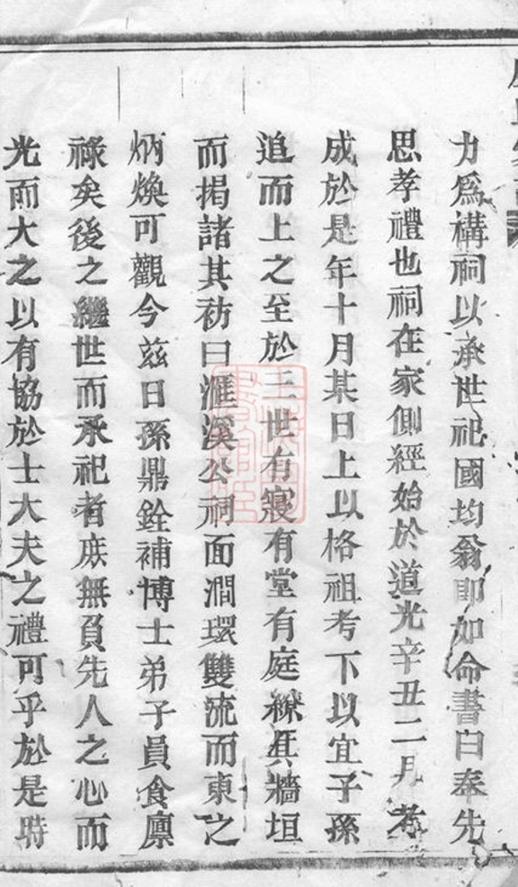 力爲構祠以承世祀國均翁即如命書曰奉先
思孝禮也祠在家側經始於道光辛丑二月考
成於是年十月某日上以格祖考下以宜子孫
追而上之至於三世有寢有堂有庭繚其牆垣
而揭諸其祊曰滙溪公祠面澗環雙流而東之
炳煥可觀今茲日孫鼎銓補博士弟子員食廩
祿矣後之繼世而承祀者庶無負先人之心而
光而大之以有協於士大夫之禮可乎於是時